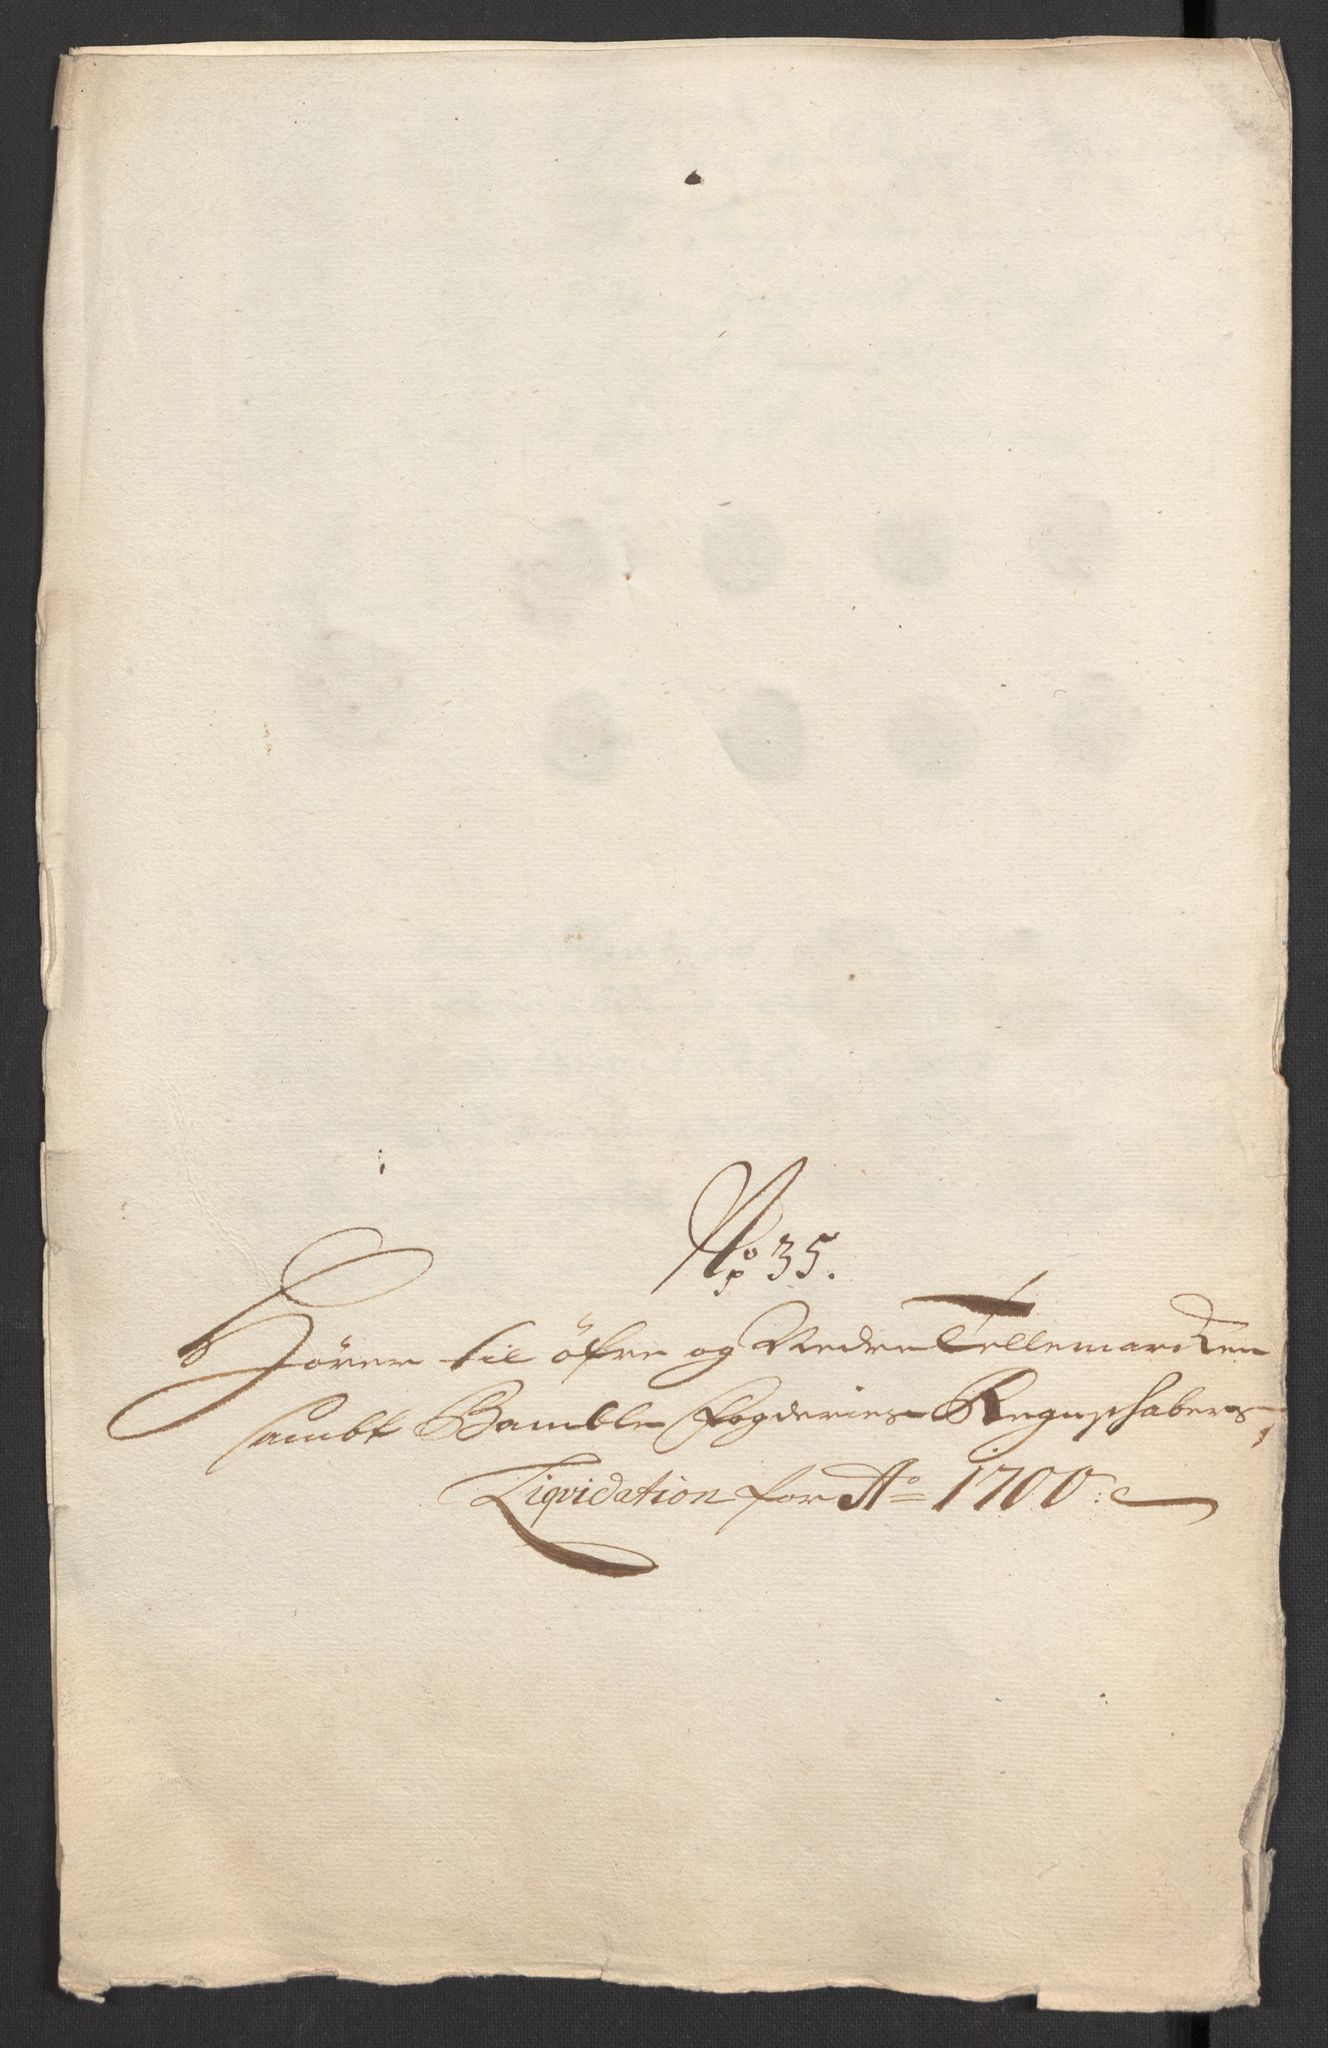 No 35.
Hörer til öfre og Nedre Tellemarcken
sambt Bamble fogderies Regnschabers
Liqvidation for Ao 1700.